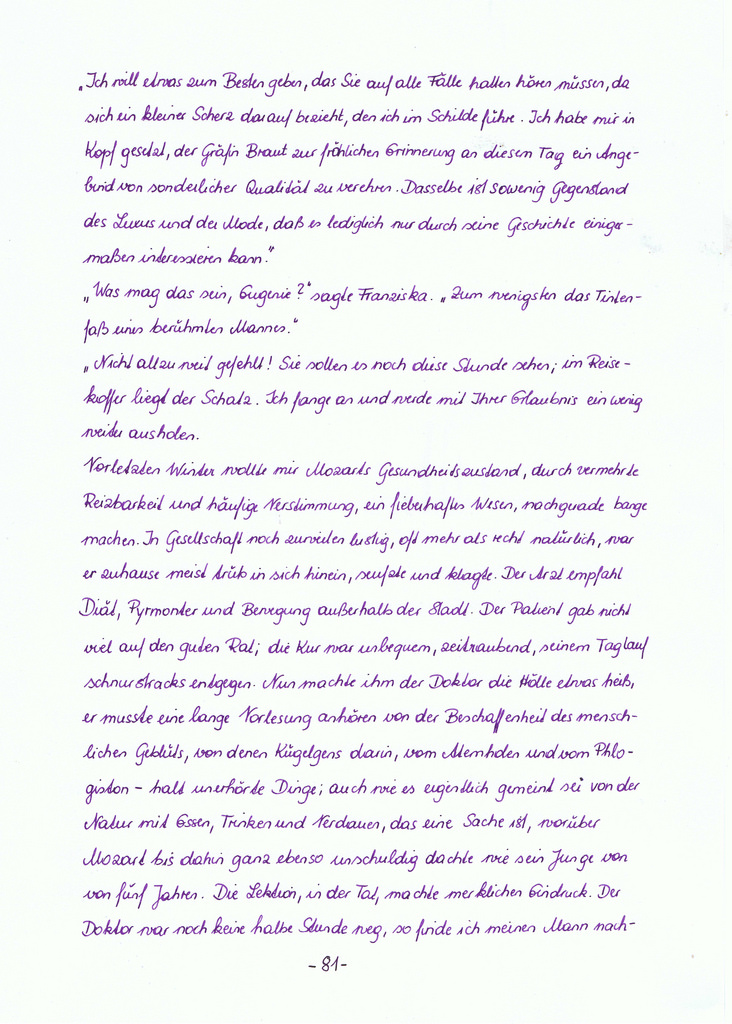 „Ich will etwas zum Besten geben, das Sie auf alle Fälle hatten hören müssen, da
sich ein kleiner Scherz darauf bezieht, den ich im Schilde führe. Ich habe mir in
Kopf gesetzt, der Gräfin Braut zur fröhlichen Erinnerung an diesen Tag ein Ange-
bind von sonderlicher Qualität zu verehren. Dasselbe ist sowenig Gegenstand
des Luxus und der Mode, daß es lediglich nur durch seine Geschichte einiger-
maßen interessieren kann."
„Was mag das sein, Eugenie?" sagte Franziska. „Zum wenigsten das Tinten-
faß eines berühmten Mannes."
„Nicht allzu weit gefehlt! Sie sollen es noch diese Stunde sehen; im Reise-
koffer liegt der Schatz. Ich fange an und werde mit Ihrer Erlaubnis ein wenig
weiter ausholen.
Vorletzten Winter wollte mir Mozarts Gesundheitszustand, durch vermehrte
Reizbarkeit und häufige Verstimmung, ein fieberhaftes Wesen, nachgerade bange
machen. In Gesellschaft noch zuweilen lustig, oft mehr als recht natürlich, war
er zuhause meist trüb in sich hinein, seufzte und klagte. Der Arzt empfahl
Diät, Pyrmonter und Bewegung außerhalb der Stadt. Der Patient gab nicht
viel auf den guten Rat; die Kur war unbequem, zeitraubend, seinem Taglauf
schnurstracks entgegen. Nun machte ihm der Doktor die Hölle etwas heiß,
er musste eine lange Vorlesung anhören von der Beschaffenheit des mensch-
lichen Geblüts, von denen Kügelgens darin, vom Atemholen und vom Phlo-
giston – halt unerhörte Dinge; auch wie es eigentlich gemeint sei von der
Natur mit Essen, Trinken und Verdauen, das eine Sache ist, worüber
Mozart bis dahin ganz ebenso unschuldig dachte wie sein Junge von
von fünf Jahren. Die Lektion, in der Tat, machte merklichen Eindruck. Der
Doktor war noch keine halbe Stunde weg, so finde ich meinen Mann nach-
-81-